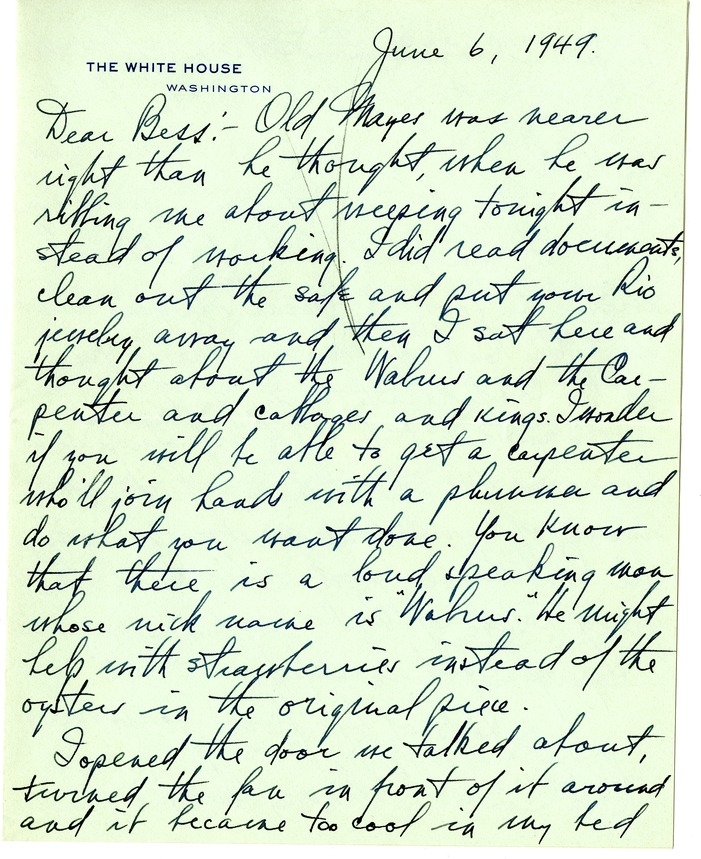 June 6, 1949.
THE WHITE HOUSE
WASHINGTON
Dear Bess:- Old Mayes was nearer
right than he thought, when he was
ribbing me about weeping tonight in-
stead of working. I did read documents,
clean out the safe and put your Rio
jewelry away and then I sat here and
thought about the Walrus and the Car-
penter and cabbages and kings. I wonder
if you will be able to get a carpenter
who'll join hands with a plummer and
do what you want done. You know
that there is a loud speaking man
whose nick name is "Walrus." He might
help with strawberries instead of the
oysters in the original piece.
I opened the door we talked about,
turned the fan in front of it around
and it became too cool in my bed